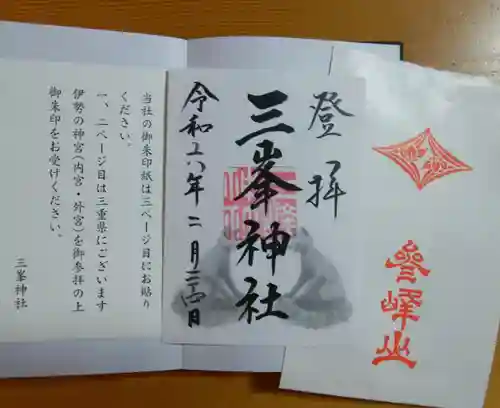 登拝
三峯神社
令和六年二月二十四日
当社の御朱印紙は三ページ目にお貼り
ください。
一、二ページ目は三重県にございます
伊勢の神宮(内宮・外宮)を御参拝の上
御朱印をお受けください。
三峯神社
參峰山